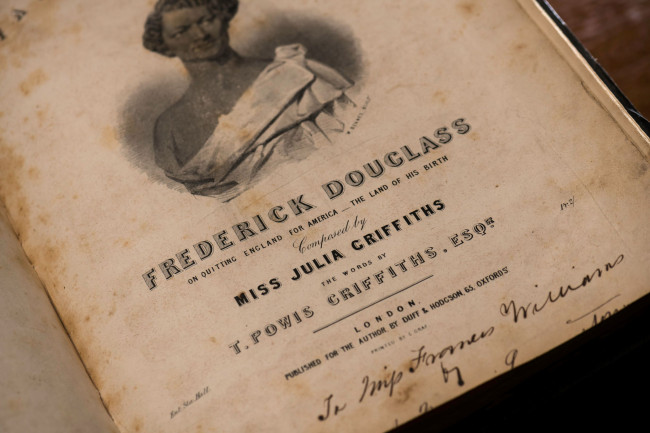 FREDERICK DOUGLASS
ON QUITTING ENGLAND FOR AMERICA — THE LAND OF HIS BIRTH
Composed by
MISS JULIA GRIFFITHS
THE WORDS BY
T. POWIS GRIFFITHS, ESQR.
LONDON,
PUBLISHED FOR THE AUTHOR BY DUFF & HODGSON, 65, OXFORD ST
PRINTED BY
Ent. Sta. Hall
To Miss Frances Williams
by